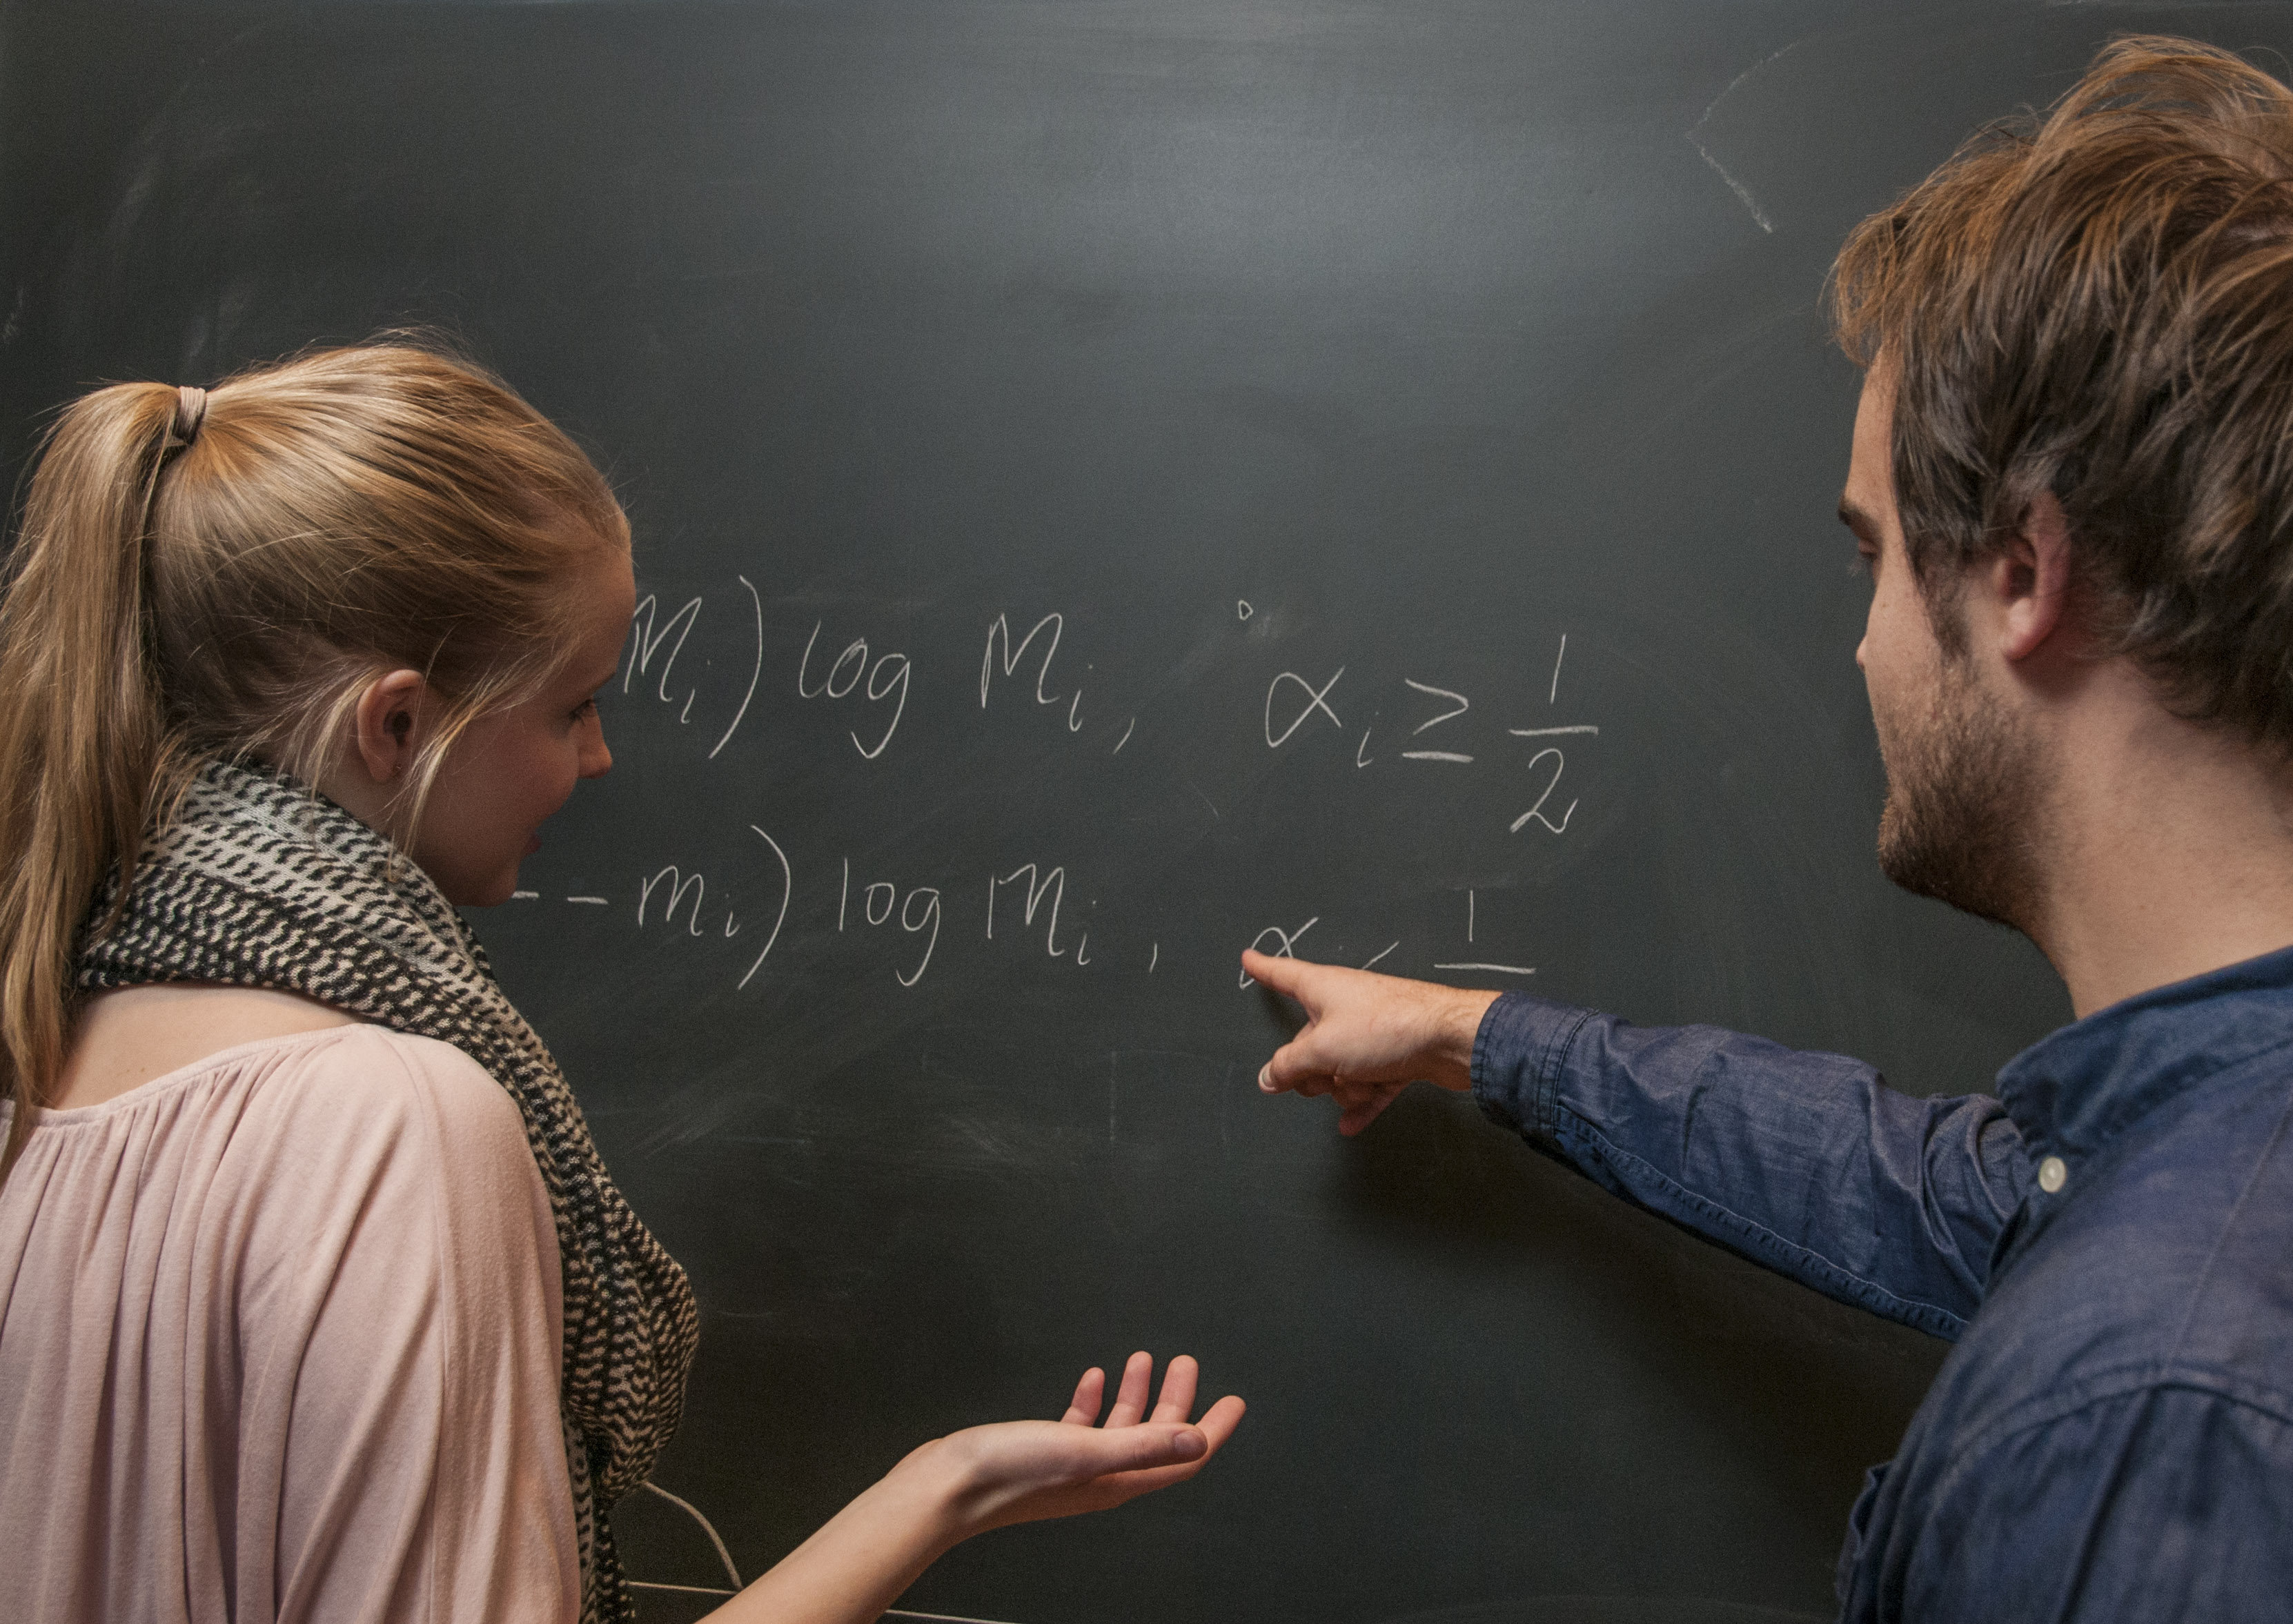 Mi) log Mi, αi ≥ 1/2
-- mi) log Mi, α < 1